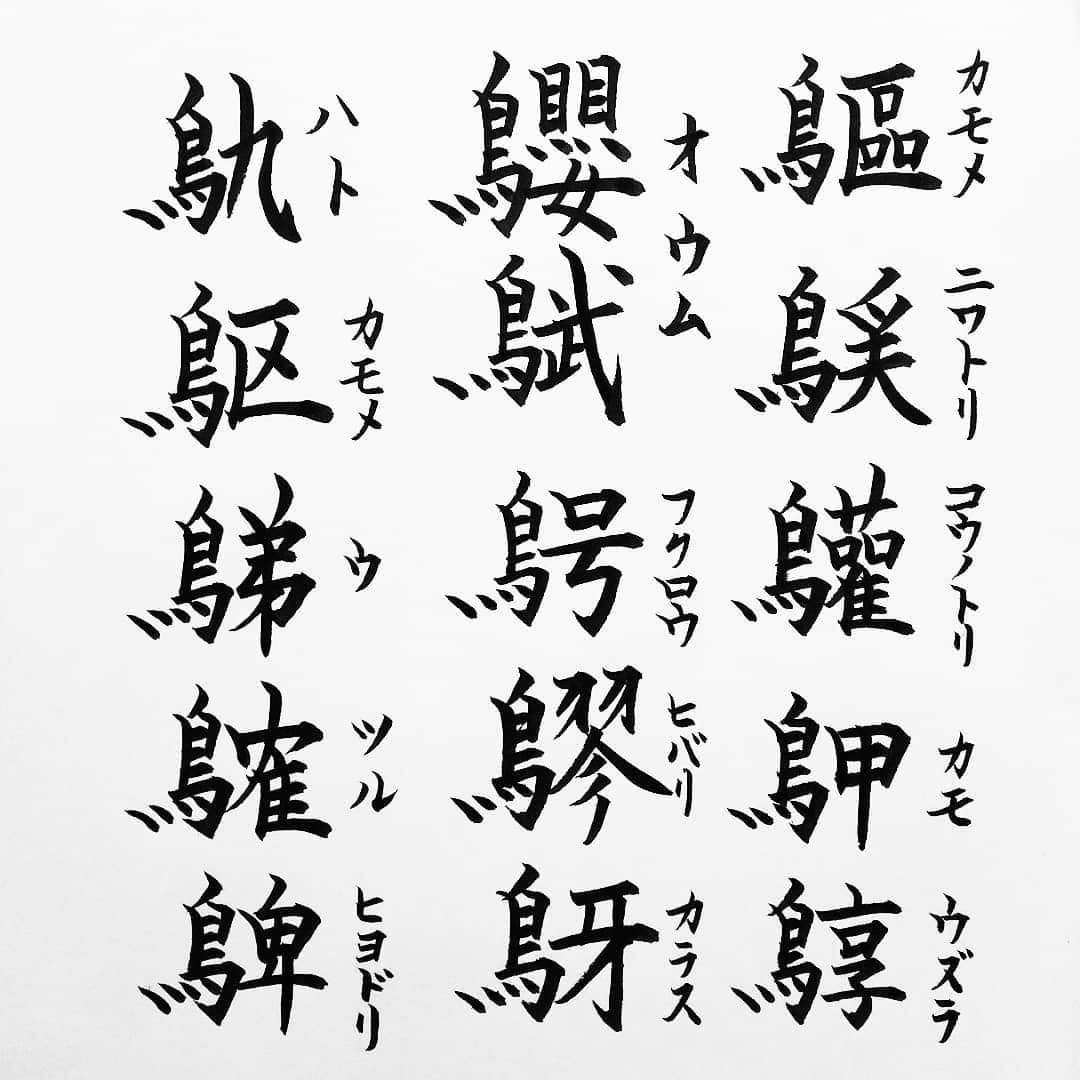 鷗
カモメ
鶏
ニワトリ
鸛
コウノトリ
鴨
カモ
鶉
ウズラ
鸚鵡
オウム
鴞
フクロウ
鷚
ヒバリ
鴉
カラス
鳩
ハト
鴎
カモメ
鵜
ウ
鶴
ツル
鵯
ヒヨドリ